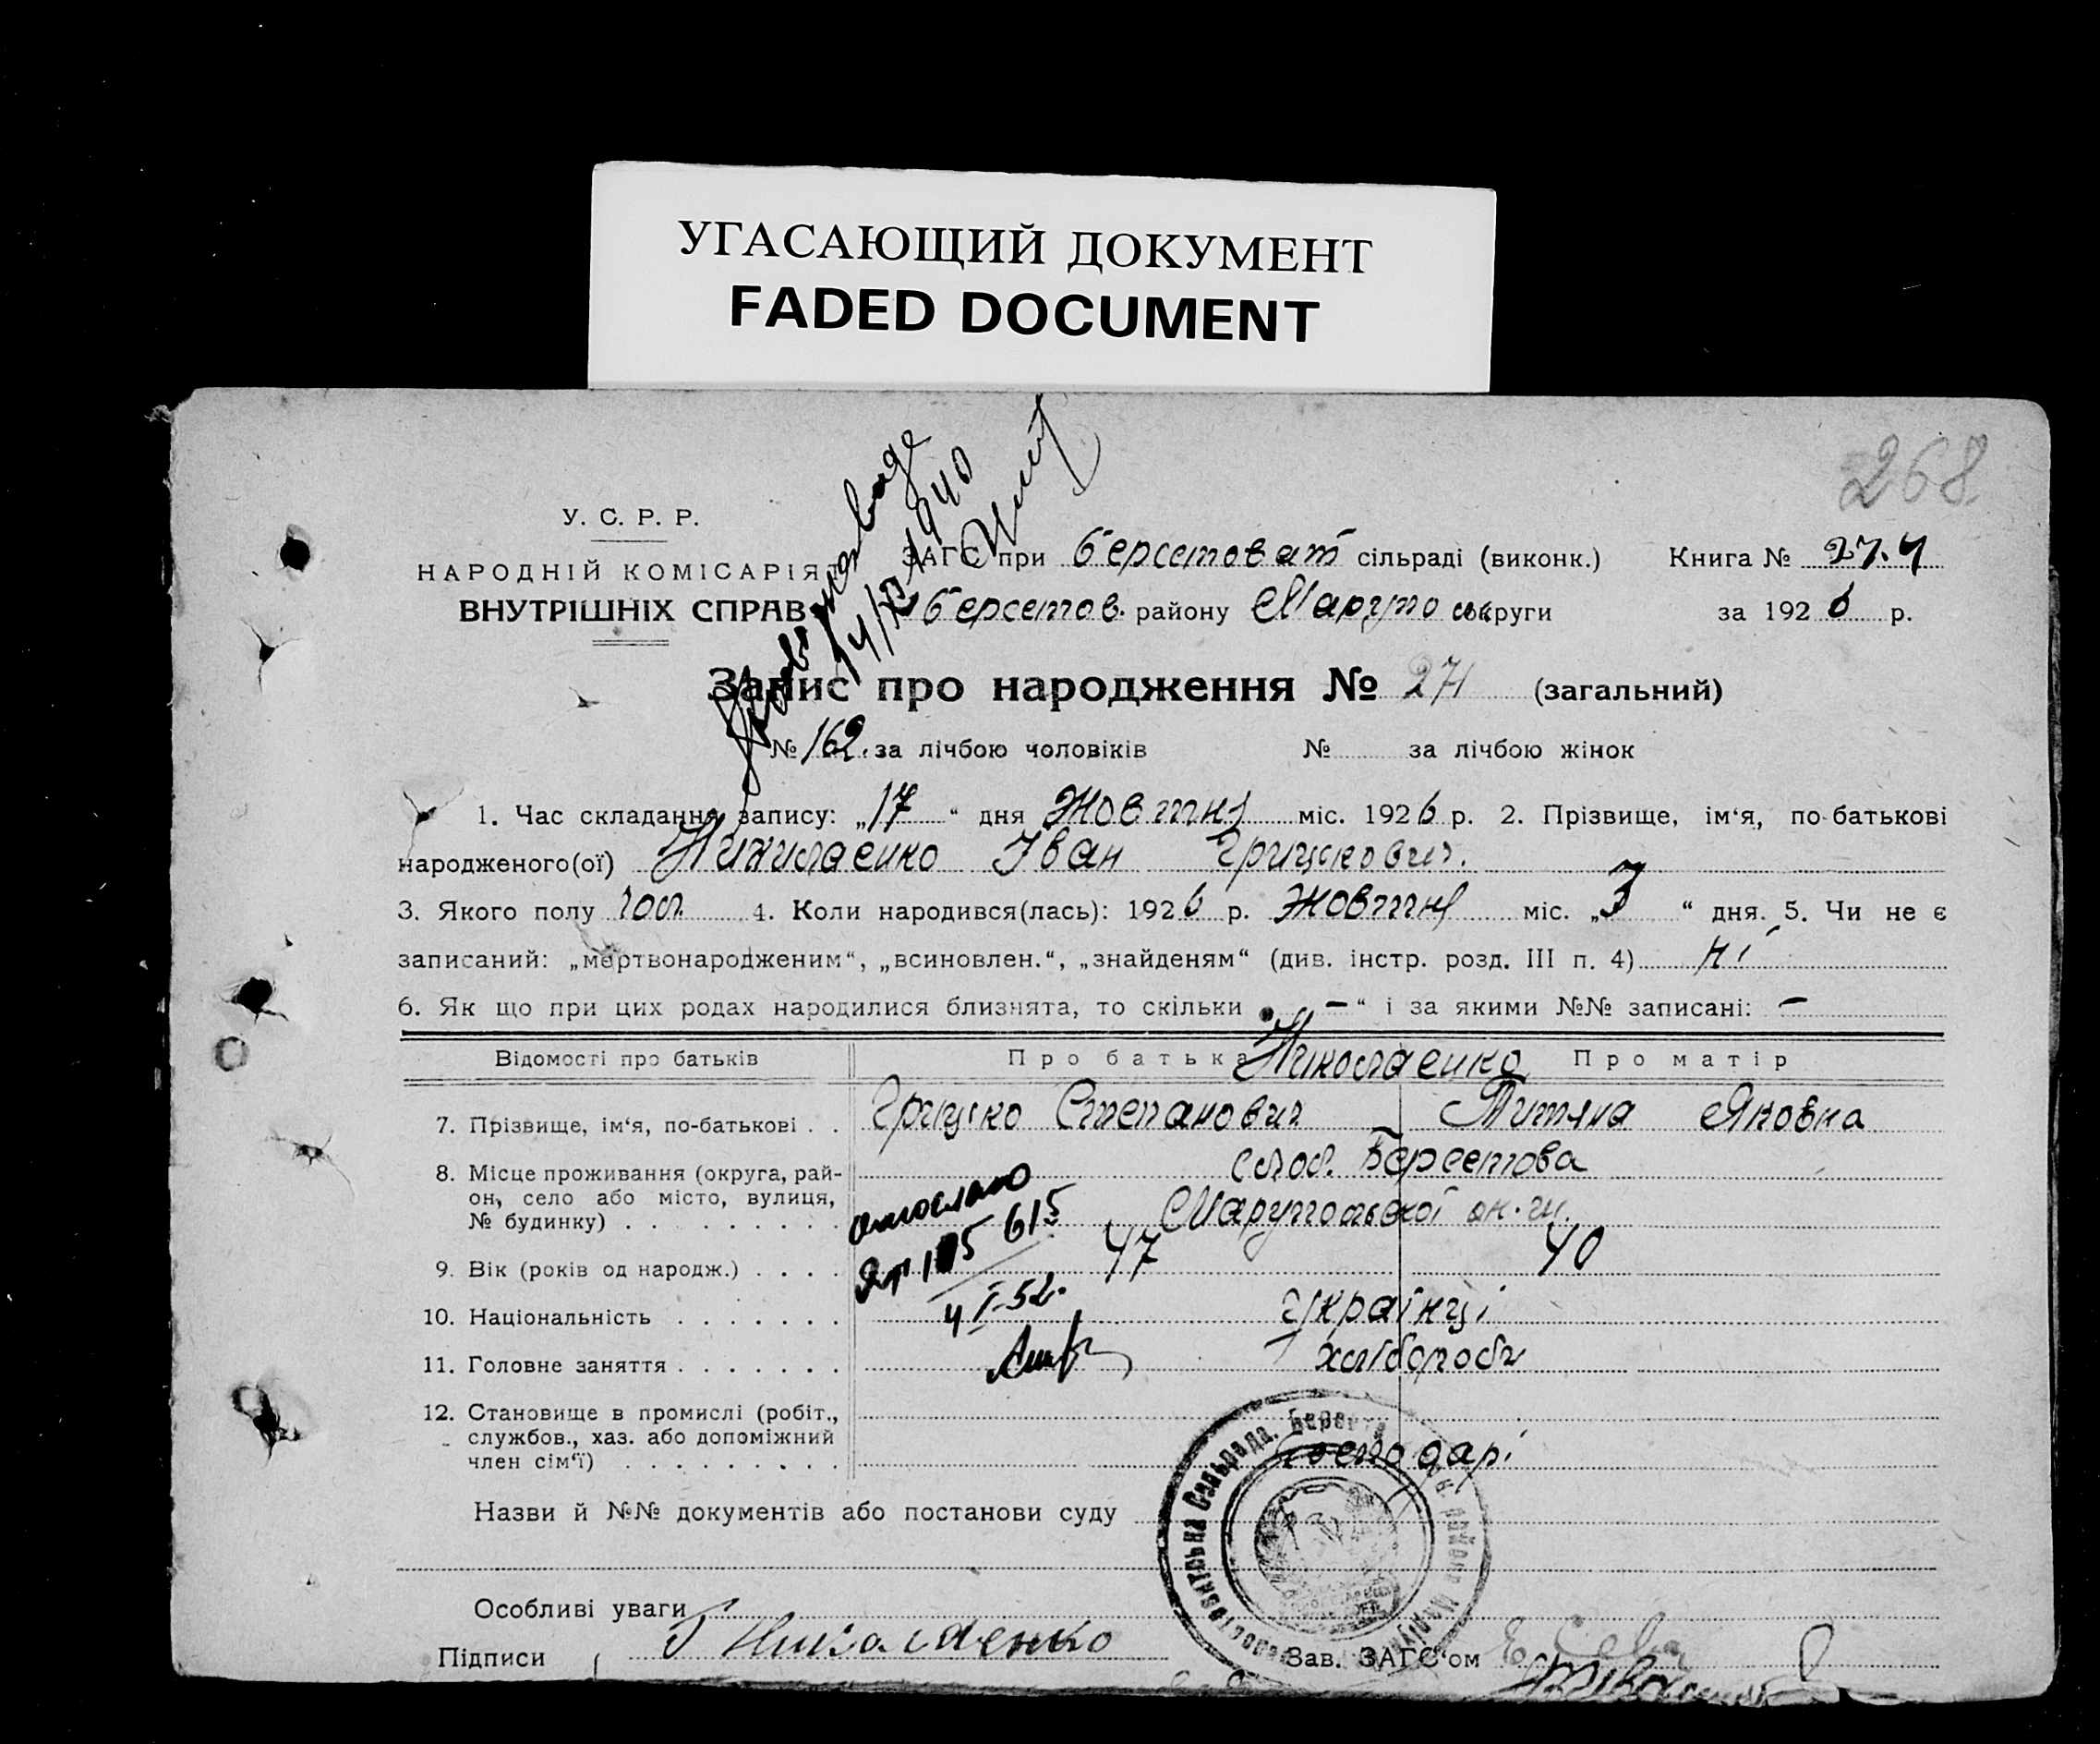 УГАСАЮЩИЙ ДОКУМЕНТ
FADED DOCUMENT
268
У. С. Р. Р.
НАРОДНІЙ КОМІСАРІЯ
ВНУТРІШНІХ СПРАВ
14/XII 1940
ЗАГС при Берестоват сільраді (виконк.) Книга № 27.4
Берестов. районy Маріупо округи за 1926 р.
Запис про народження № 271 (загальний)
№ 162. за лічбою чоловіків № за лічбою жінок
1. Час складання запису: „17“ дня Жовтня міс. 1926 р. 2. Прізвище, ім‘я, по-батькові
народженого(ої) Николаенко Іван Грицькович.
3. Якого полу чол. 4. Коли народився(лась): 1926 р. Жовтня міс. „3“ дня. 5. Чи не є
записаний: „мертвонародженим“, „всиновлен.“, „знайденям“ (див. інстр. розд. III п. 4) ні
6. Як що при цих родах народилися близнята, то скільки „–“ і за якими №№ записані: –
Відомості про батьків Про батька Николаенко Про матір
7. Прізвище, ім‘я, по-батькові . . Грицько Степанович Титяна Яковна
8. Місце проживання (округа, рай- слоб. Берестова
он, село або місто, вулиця, Марупольської ок.
№ будинку) . . . . . . . . .
отослано
615
4 I-52.
9. Вік (років од народж.) . . . . 47 40
10. Національність . . . . . . . Українці
11. Головне заняття . . . . . . . хлібороби
12. Становище в промислі (робіт.,
службов., хаз. або допоміжний
член сім‘ї) . . . . . . . . . Господарі
Назви й №№ документів або постанови суду
Сельрада. Берест
Особливі уваги
Підписи Г Николаенко Зав. ЗАГС‘ом